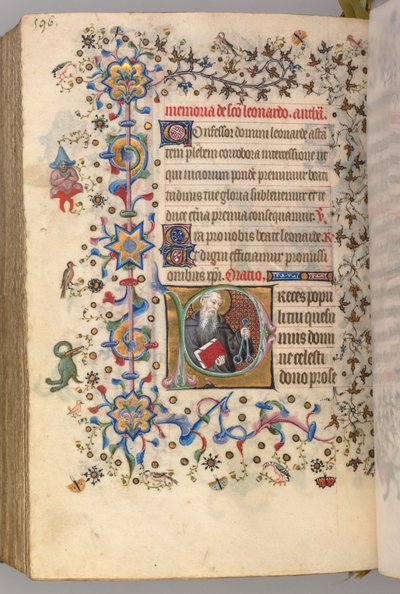 196.
memoria de sco leonardo. anthā.
Confessor domini leonarde astā
tem plebem corrobora intercessione ut
qui uiciorum pondē premimur beati
tudinis tue gloria subleuemur et te
duce etna premia consequamur. V
Ora pro nobis beate leonarde. R
Ut digni efficiamur promissi
onibus xpi. Oratio.
Preces popu
li tui quesu
mus domi
ne celesti
dono prose